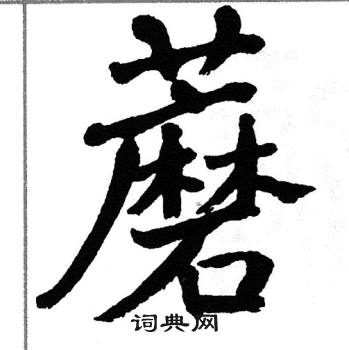 蘑
词典网